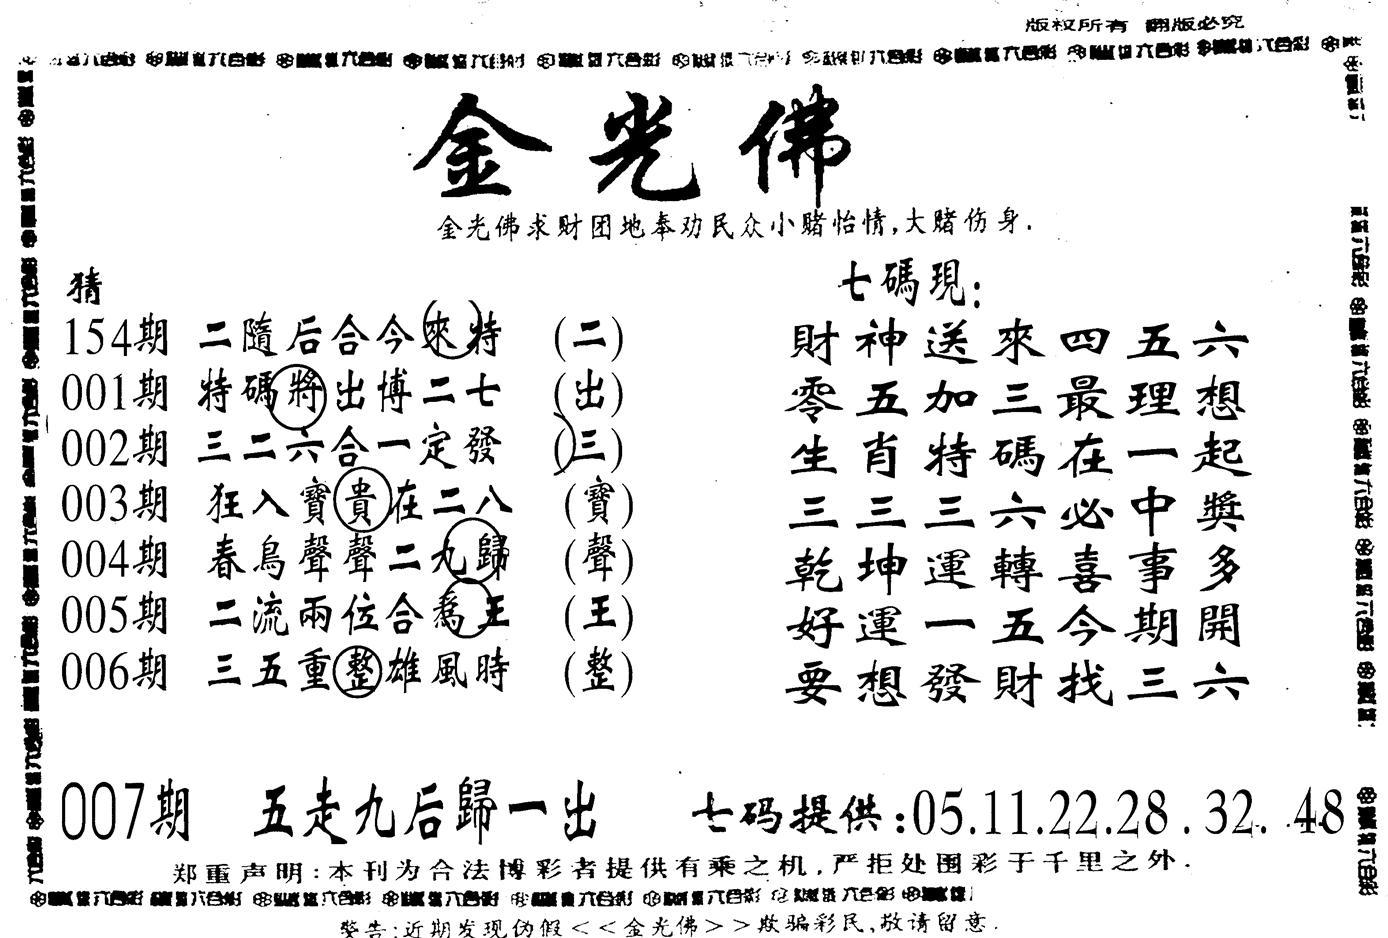 版权所有 翻版必究
金光佛
金光佛求财团地奉劝民众小赌怡情,大赌伤身.
猜
154期 二隨后合今來特 (二)
001期 特碼將出博二七 (出)
002期 三二六合一定發 (三)
003期 狂入寶貴在二八 (寶)
004期 春鳥聲聲二九歸 (聲)
005期 二流兩位合為王 (王)
006期 三五重整雄風時 (整)
七碼現:
財神送來四五六
零五加三最理想
生肖特碼在一起
三三三六必中獎
乾坤運轉喜事多
好運一五今期開
要想發財找三六
007期 五走九后歸一出
七码提供:05.11.22.28.32.48
郑重声明:本刊为合法博彩者提供有乘之机,严拒处围彩于千里之外.
警告:近期发现伪假<<金光佛>>欺骗彩民,敬请留意.